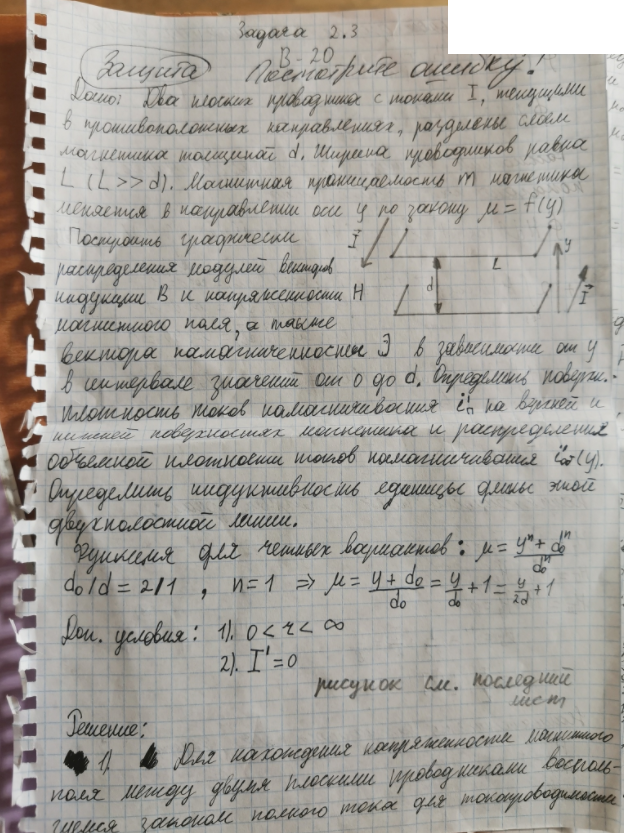 Задача 2.3
В-20
Защита Посмотрите ошибку!
Дано: Два плоских проводника с токами I, текущими
в противоположных направлениях, разделены слоем
магнетика толщиной d. Ширина проводников равна
L (L >> d). Магнитная проницаемость m магнетика
меняется в направлении оси y по закону μ = f(y)
Построить графически
распределения модулей векторов
индукции B и напряженности H
магнитного поля, а также
I L y d I
вектора намагниченности J в зависимости от y
в интервале значений от 0 до d. Определить поверхн.
плотность токов намагничивания i'п на верхней и
нижней поверхностях магнетика и распределения
объемной плотности токов намагничивания i'об(y).
Определить индуктивность единицы длины этой
двухполостной линии.
Функция для четных вариантов: μ = (yⁿ + d₀ⁿ)/d₀ⁿ
d₀/d = 2/1 , n=1 ⇒ μ = (y + d₀)/d₀ = y/d₀ + 1 = y/2d + 1
Доп. условия: 1). 0 < r < ∞
2). I' = 0
рисунок см. последний
лист
Решение:
1) Для нахождения напряженности магнитного
поля между двумя плоскими проводниками восполь-
зуемся законом полного тока для токопроводимости